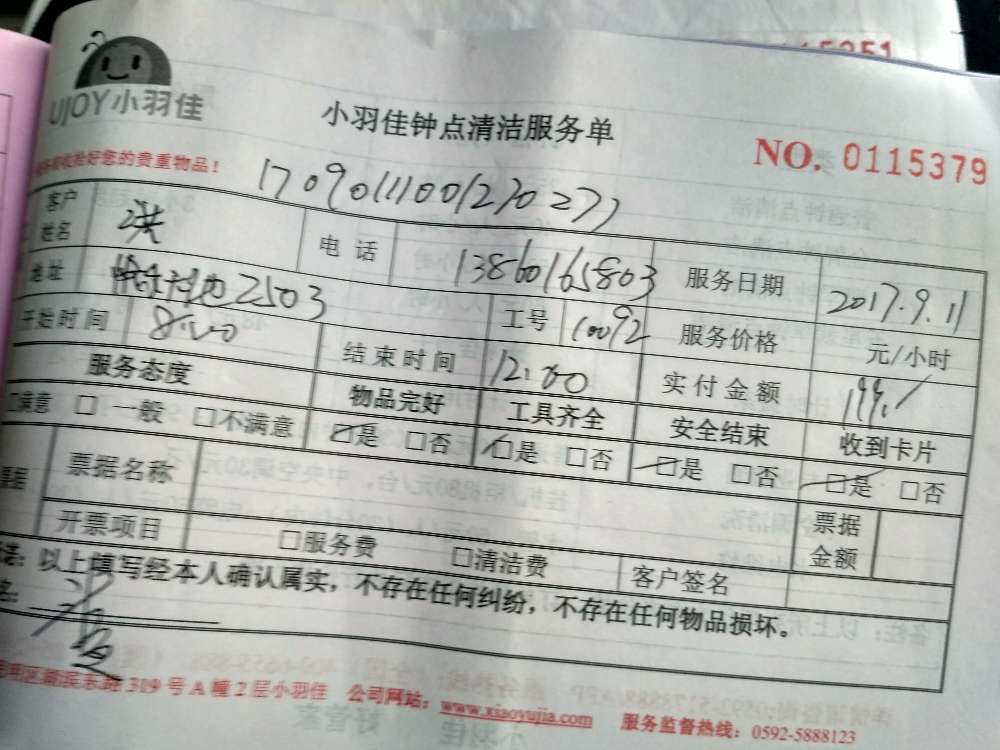 UJOY小羽佳
小羽佳钟点清洁服务单
NO. 0115379
收拾好您的贵重物品！
17090111001270277
客户姓名 洪 电话 13860165803 服务日期 2017.9.11
地址 2503 工号 10092 服务价格 元/小时
开始时间 8:00 结束时间 12:00 实付金额 199
服务态度 物品完好 工具齐全 安全结束 收到卡片
满意 □一般 □不满意 □是 □否 □是 □否 □是 □否 □是 □否
票据 票据名称 票据金额
开票项目 □服务费 □清洁费 客户签名
以上填写经本人确认属实，不存在任何纠纷，不存在任何物品损坏。
湖滨东路319号A幢2层小羽佳 公司网站：www.xiaoyujia.com 服务监督热线：0592-5888123